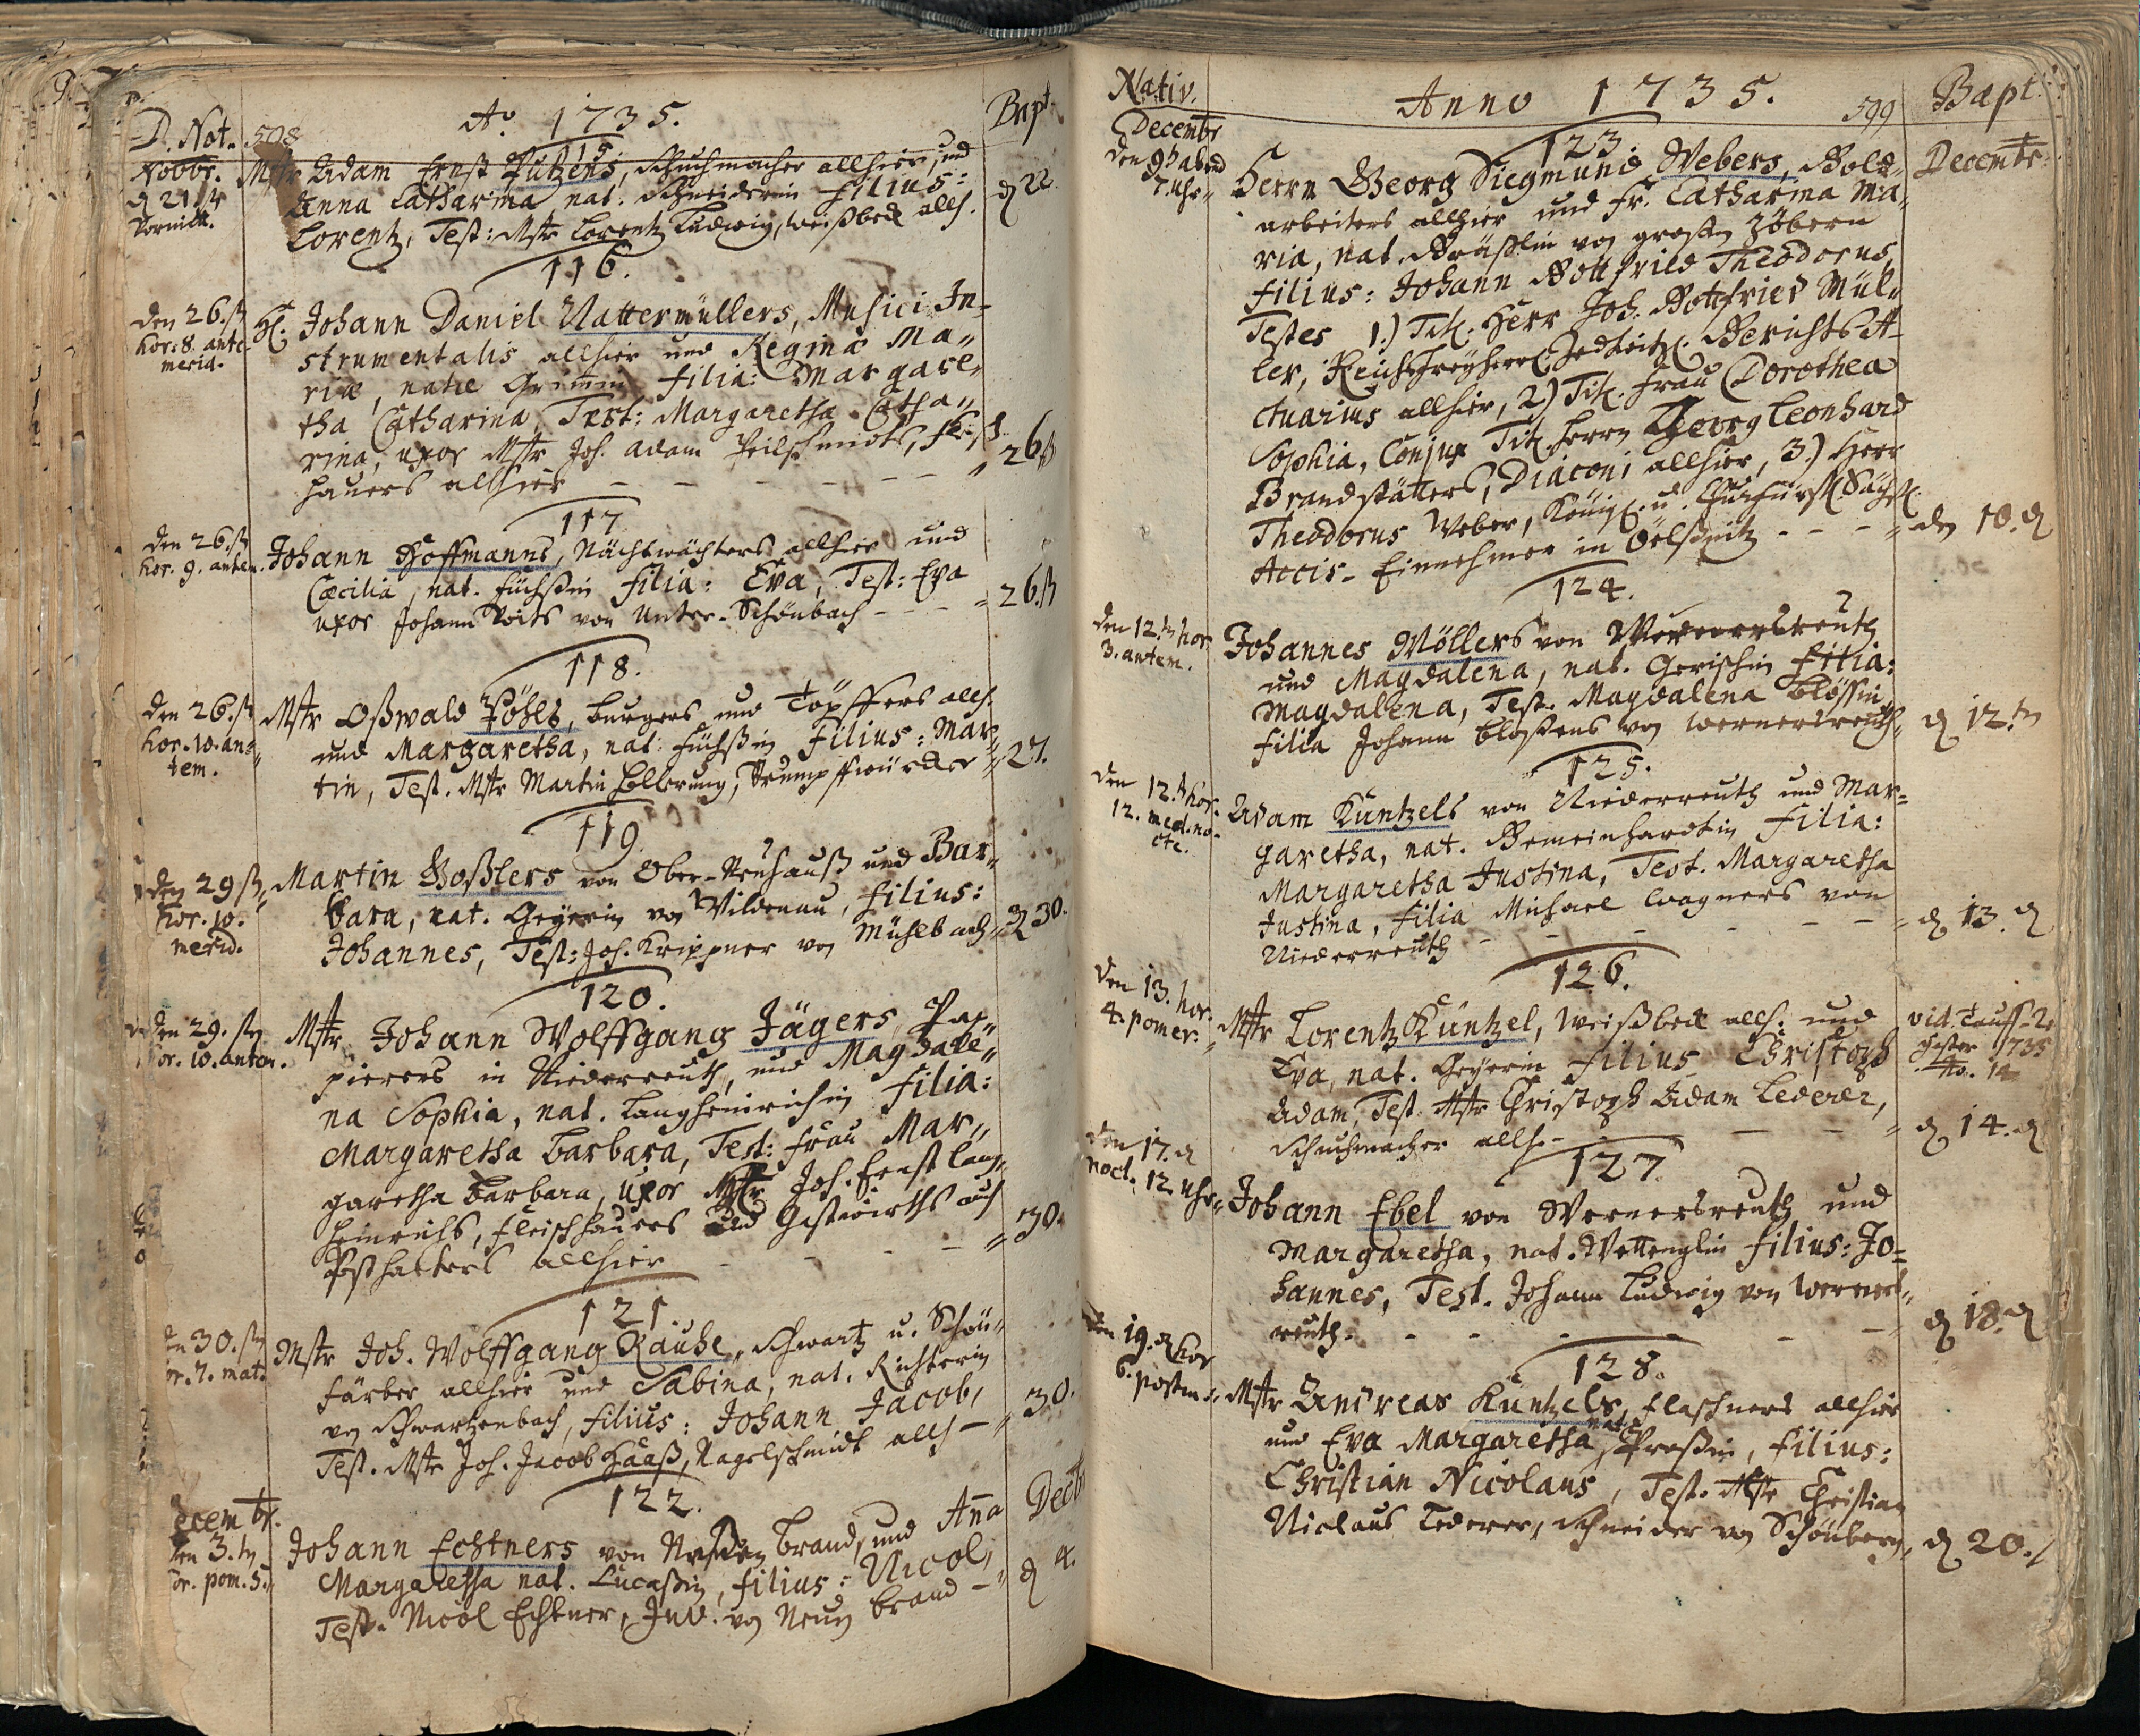 D. Nat. 598
Ao. 1735.
Bapt.
115.
Novbr.
d 21. st
Vormitt.
Mstr Adam Ernst Putzens, Schuchmacher allhier, und
Anna Catharina nat. Schneiderin Filius:
Lorentz, Test: Mstr Lorentz Ludwig, weißbeck allh.
d 22.
116.
den 26. st
hor. 8. ante
merid.
H. Johann Daniel Nattermüllers, Musici In-
strumentalis allhier und Regina Ma-
ria, natae Grimmin filia: Margare-
tha Catharina, Test: Margaretha Catha-
rina, uxor Mstr Joh. Adam Peilschmidts, Fleisch-
hauers allhier - - - - - -
26. st
117.
den 26. st
hor. 9. antem.
Johann Hoffmanns, Nachtwächters allhier und
Caecilia, nat. Füchßin Filia: Eva, Test: Eva
uxor Johann Voits von Unter-Schönbach - - -
26. st
118.
den 26. st
hor. 10. an-
tem.
Mstr Oßwald Pöhls, burgers und Töpffers allh.
und Margaretha, nat: Füchßin Filius: Mar-
tin, Test. Mstr Martin Hollerung, Strumpffwürcker
27.
119.
den 29 st,
hor. 10.
merid.
Martin Goßlers von Ober-Neuhauß und Bar-
bara, nat. Geyerin von Wildenau, Filius:
Johannes, Test: Joh. Krippner von Mühlbach
d 30.
120.
den 29. st
hor. 10. antem.
Mstr Johann Wolffgang Jägers Pap-
pierers in Niederreuth, und Magdale-
na Sophia, nat. Langheinrichin Filia:
Margaretha Barbara, Test: Frau Mar-
garetha Barbara, uxor Mstr Joh. Ernst Lang-
heinrichs, Fleischhauers und Gastwirths auch
Posthalters allhier - - - -
30.
121.
den 30. st
hor. 7. mat.
Mstr Joh. Wolffgang Rauhe, Schwartz u. Schön-
färber allhier und Sabina, nat. Richterin
von Schwartzenbach, filius: Johann Jacob,
Test. Mstr Joh. Jacob Haaß, Nagelschmidt allh -
30.
122.
Decembr.
den 3. tn
hor. pom. 5.
Johann Echtners von Neuen brand, und Anna
Margaretha nat. Lucaßin, filius: Nicol,
Test. Nicol Echtner, Inv. von Neuen brand -
Decbr
d 4.
Nativ.
Anno 1735.
599
Bapt.
123
Decembr
den 9. abend
7. Uhr
Decembr.
Herrn Georg Siegmund Webers, Gold-
arbeiters allhier und Fr. Catharina Ma-
ria, nat. Gräßlin von großen Zöbern
filius: Johann Gottfried Theodorus,
Testes 1.) Tit. Herr Joh. Gottfried Mül-
ler, Reichs Freyherrl. Zedtwitz. Gerichts-A-
ctuarius allhier, 2) Tit. Frau Dorothea
Sophia, Conjux Tit. Herrn Georg Leonhard
Brandstätters, Diaconi allhier, 3.) Herr
Theodorus Weber, Königl. u. Churfürstl. Sächß.
Accis-Einnehmer in Oelßnitz - - - -
den 10. d
124.
den 12. tn hor.
3. antem.
Johannes Möllers von Wernersreuth
und Magdalena, nat. Gerischin filia:
Magdalena, Test. Magdalena Blößin,
filia Johann Bloßens von Wernersreuth
d 12. tn
125.
den 12. tn hor.
12. med. no-
cte.
Adam Küntzels von Niederreuth und Mar-
garetha, nat. Gemeinhardtin Filia:
Margaretha Justina, Test. Margaretha
Justina, filia Michael Wagners von
Niederreuth - - - - -
d 13. d
126.
den 13. hor.
4. pomer.
Mstr Lorentz Küntzel, Weißbeck allh. und
Eva, nat. Geyerin filius Christoph
Adam, Test. Mstr Christoph Adam Lederer,
Schuchmacher allh. - - - -
vid. Tauff-Re
gister 1735
No. 14
d 14. d
127.
den 17. d
noct. 12. uhr
Johann Ebel von Wernersreuth und
Margaretha, nat. Wettenglin filius: Jo-
hannes, Test. Johann Ludwig von Werners-
reuth. - - - - -
d 18. d
128.
den 19. d hor
6. postm.
Mstr Andreas Küntzels, Flaschners allhier
und Eva Margaretha nata Proßin, filius:
Christian Nicolaus, Test. Mstr Christian
Niclaus Lederer, Schneider von Schönberg,
d 20.